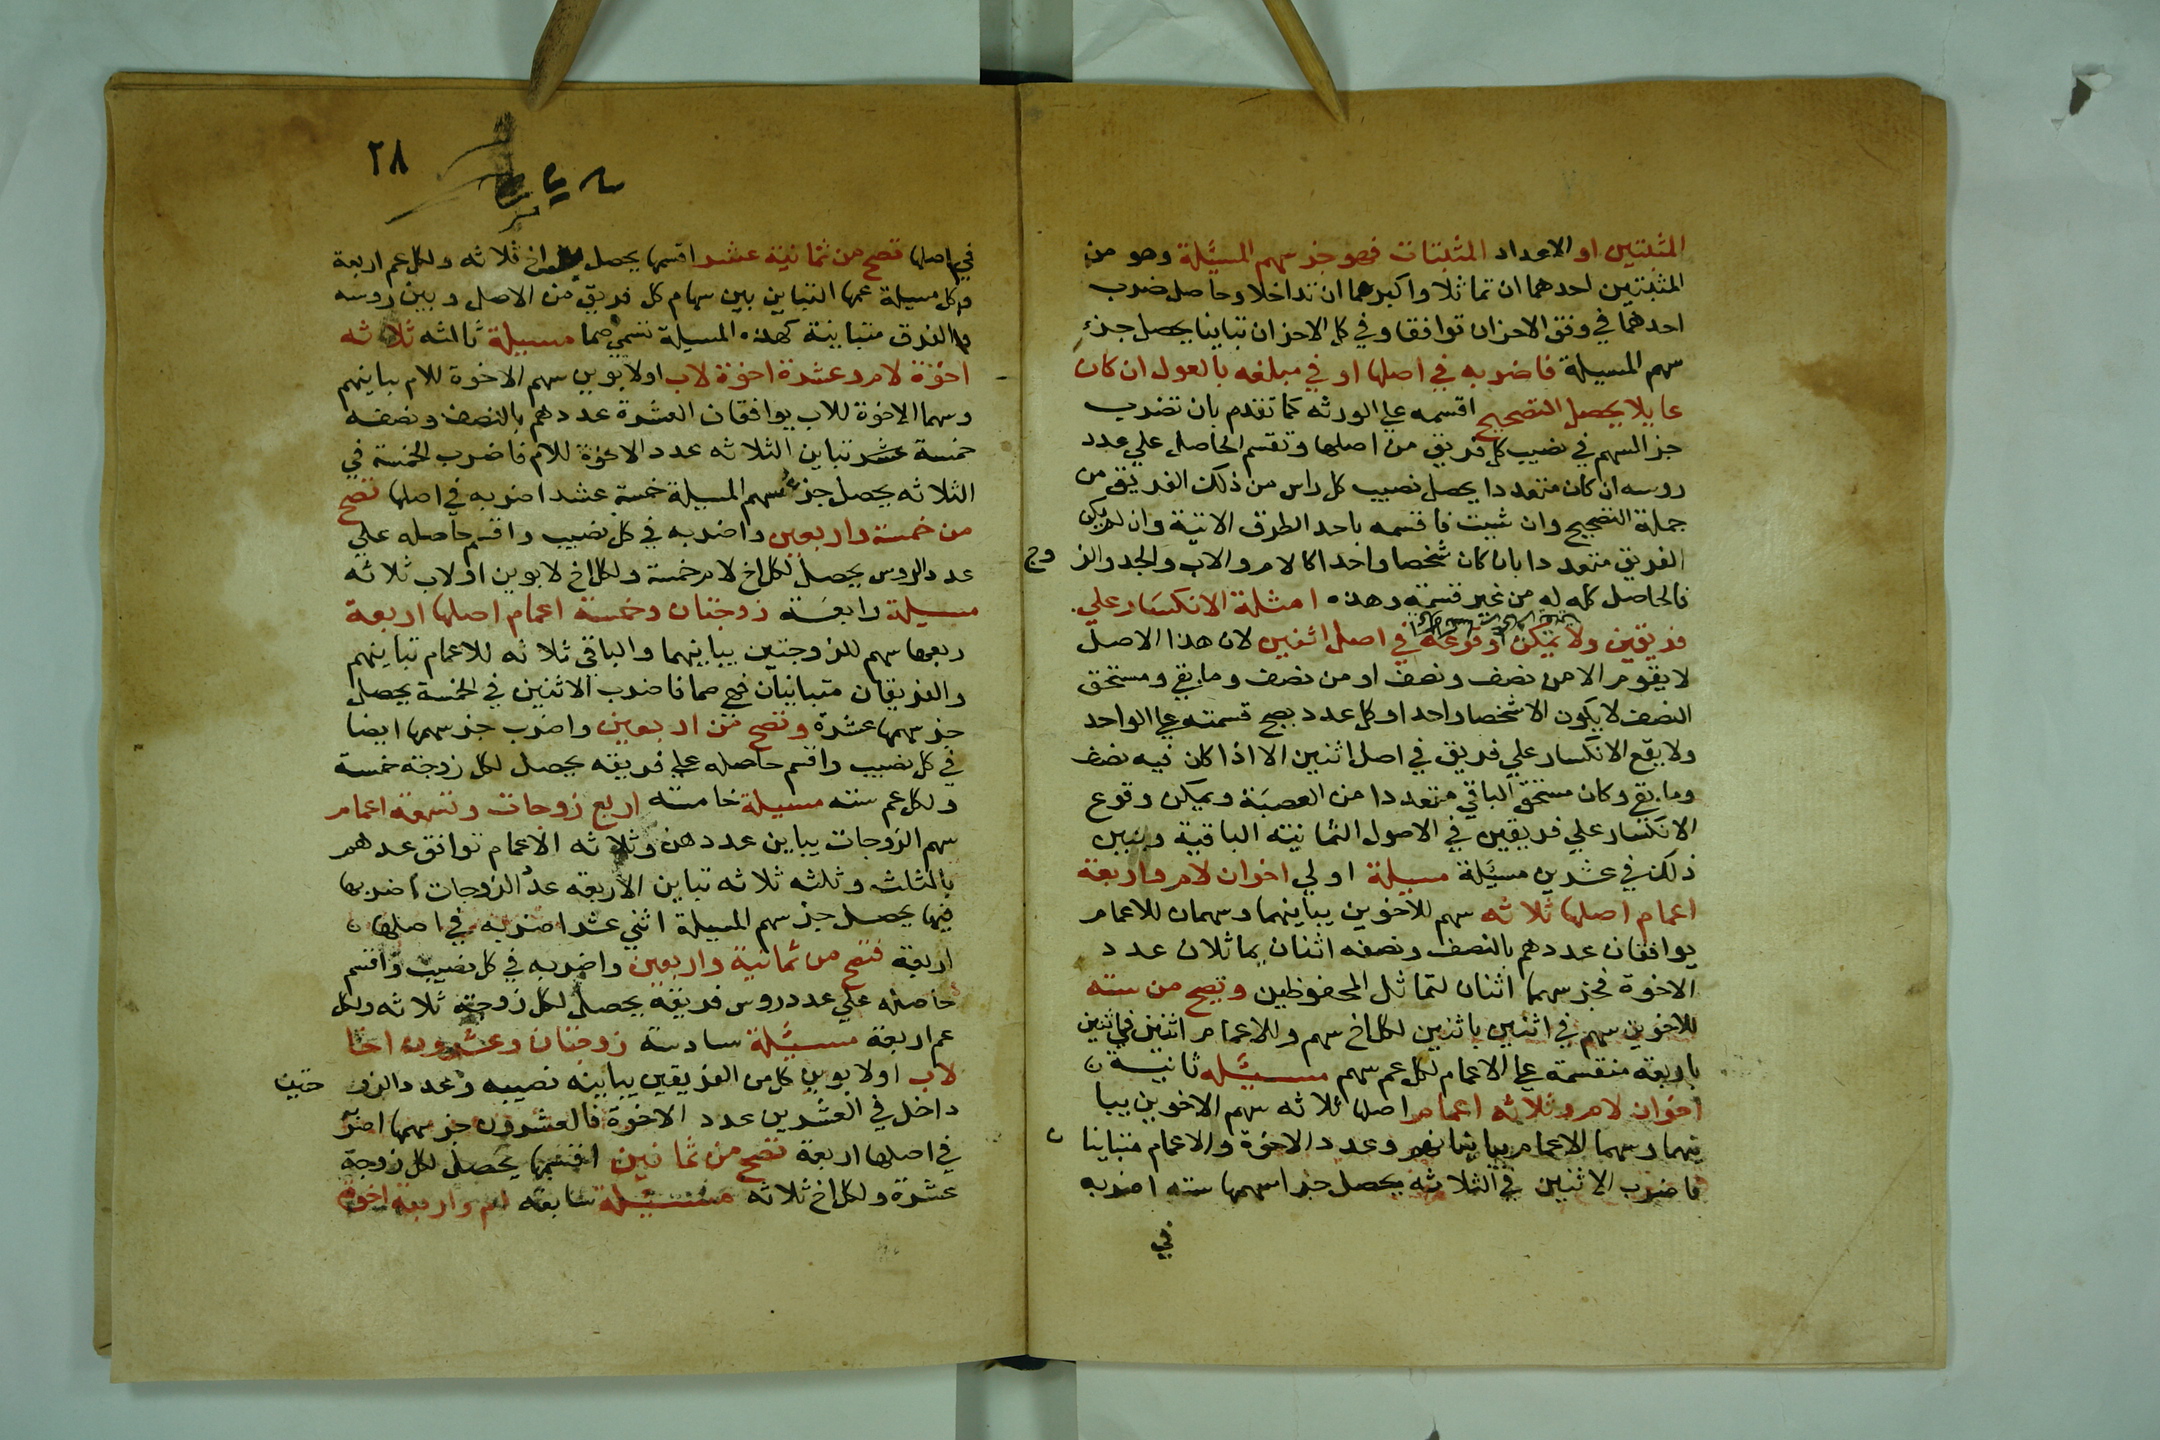 المثبتين او الاعداد المثبتات فهو جز سهم المسئلة وهو من
المثبتين احدهما ان تماثلا واكبرهما ان تداخلا وحاصل ضرب
احدهما في وفق الاخران توافقا وفي كل الاخران تباينا يحصل جزء
سهم المسيلة فاضربه في اصلها او في مبلغه بالعول ان كان
عايلا يحصل التصحيح اقسمه علي الورثه كما تقدم بان تضرب
جز السهم في نصيب كل فريق من اصلها وتقسم الحاصل علي عدد
روسه ان كان متعددا يحصل نصيب كل راس من ذلك الفريق من
جملة التصحيح وان شيت فاقسمه باحد الطرق الاتية وان لم يكن
الفريق متعددا بان كان شخصا واحدا كالام والاب والجد والز وج
فالحاصل كله له من غير قسمة وهذه امثلة الانكسار علي
فريقين ولا يمكن وقوعه في اصل اثنين لان هذا الاصل
لا يقوم الا من نصف ونصف او من نصف وما بقي ومستحق
النصف لا يكون الا شخصا واحدا وكل عدد يصح قسمته علي الواحد
ولا يقع الانكسار علي فريق في اصل اثنين الا اذا كان فيه نصف
وما بقي وكان مستحق الباقي متعددا من العصبة ويمكن وقوع
الانكسار علي فريقين في الاصول الثمانيته الباقية وتبين
ذلك في عشرين مسئلة مسيلة اولي اخوان لام واربعة
اعمام اصلها ثلاثه سهم للاخوين يباينهما وسهمان للاعمام
يوافقان عددهم بالنصف ونصفه اثنان يماثلان عدد
الاخوة فجز سهمها اثنان لتماثل المحفوظين وتصح من سته
للاخوين سهم في اثنين باثنين لكل اخ سهم وللاعمام اثنين في اثنين
باربعة منقسمة علي الاعمام لكل عم سهم مسئله ثانية
اخوان لام وثلاثه اعمام اصلها ثلاثه سهم الاخوين يبا
ينهما وسهما الاعمام يباينانهم وعدد الاخوة والاعمام متباينا ن
فاضرب الاثنين في الثلاثة يحصل جز اسهمها سته اضربه
في
٢٨
في اصلها تصح من ثمانية عشر اقسمها يحصل اخ ثلاثه ولكل عم اربعة
وكل مسيلة عمها التباين بين سهام كل فريق من الاصل وبين روسه
والفرق متباينة كهذه المسيلة تسمي صما مسيلة ثالثه ثلاثه
اخوة لام وعشرة اخوة لاب او لابوين سهم الاخوة للام يباينهم
وسهما الاخوة للاب يوافقان العشرة عددهم بالنصف ونصفه
خمسة عشر تباين الثلاثه عدد الاخوة للام فاضرب الخمسة في
الثلاثه يحصل جز سهم المسيلة خمسة عشر اضربه في اصلها تصح
من خمسة واربعين واضربه في كل نصيب واقسم حاصله علي
عدد الروس يحصل لكل اخ لام خمسة ولكل اخ لابوين او لاب ثلاثه
مسيلة رابعة زوجتان وخمسة اعمام اصلها اربعة
ربعها سهم للزوجتين يباينهما والباقي ثلاثه للاعمام تباينهم
والفريقان متباينان فهي صما فاضرب الاثنين في الخمسة يحصل
جز سهمها عشرة وتصح من اربعين واضرب جز سهمها ايضا
في كل نصيب واقسم حاصله علي فريقه يحصل لكل زوجة خمسة
ولكل عم سته مسيلة خامسته اربع زوجات وتسعة اعمام
سهم الزوجات يباين عددهن وثلاثه الاعمام توافق عددهم
بالثلث وثلثه ثلاثه تباين الاربعه عدد الزوجات اضربها
فيها يحصل جز سهم المسيلة اثني عشر اضربه في اصلها
اربعة فتصح من ثمانية واربعين واضربه في كل نصيب واقسم
حاصله علي عدد روس فريقه يحصل لكل زوجة ثلاثه ولكل
عم اربعة مسئلة سادسة زوجتان وعشرون اخا
لاب او لابوين كل من الفريقين يباينه نصيبه وعدد الزو جتين
داخل في العشرين عدد الاخوة فالعشرون جز سهمها اضربه
في اصلها اربعة تصح من ثمانين اقسمها يحصل لكل زوجة
عشرة ولكل اخ ثلاثه مسئيلة سابعه ام واربعة اخوة